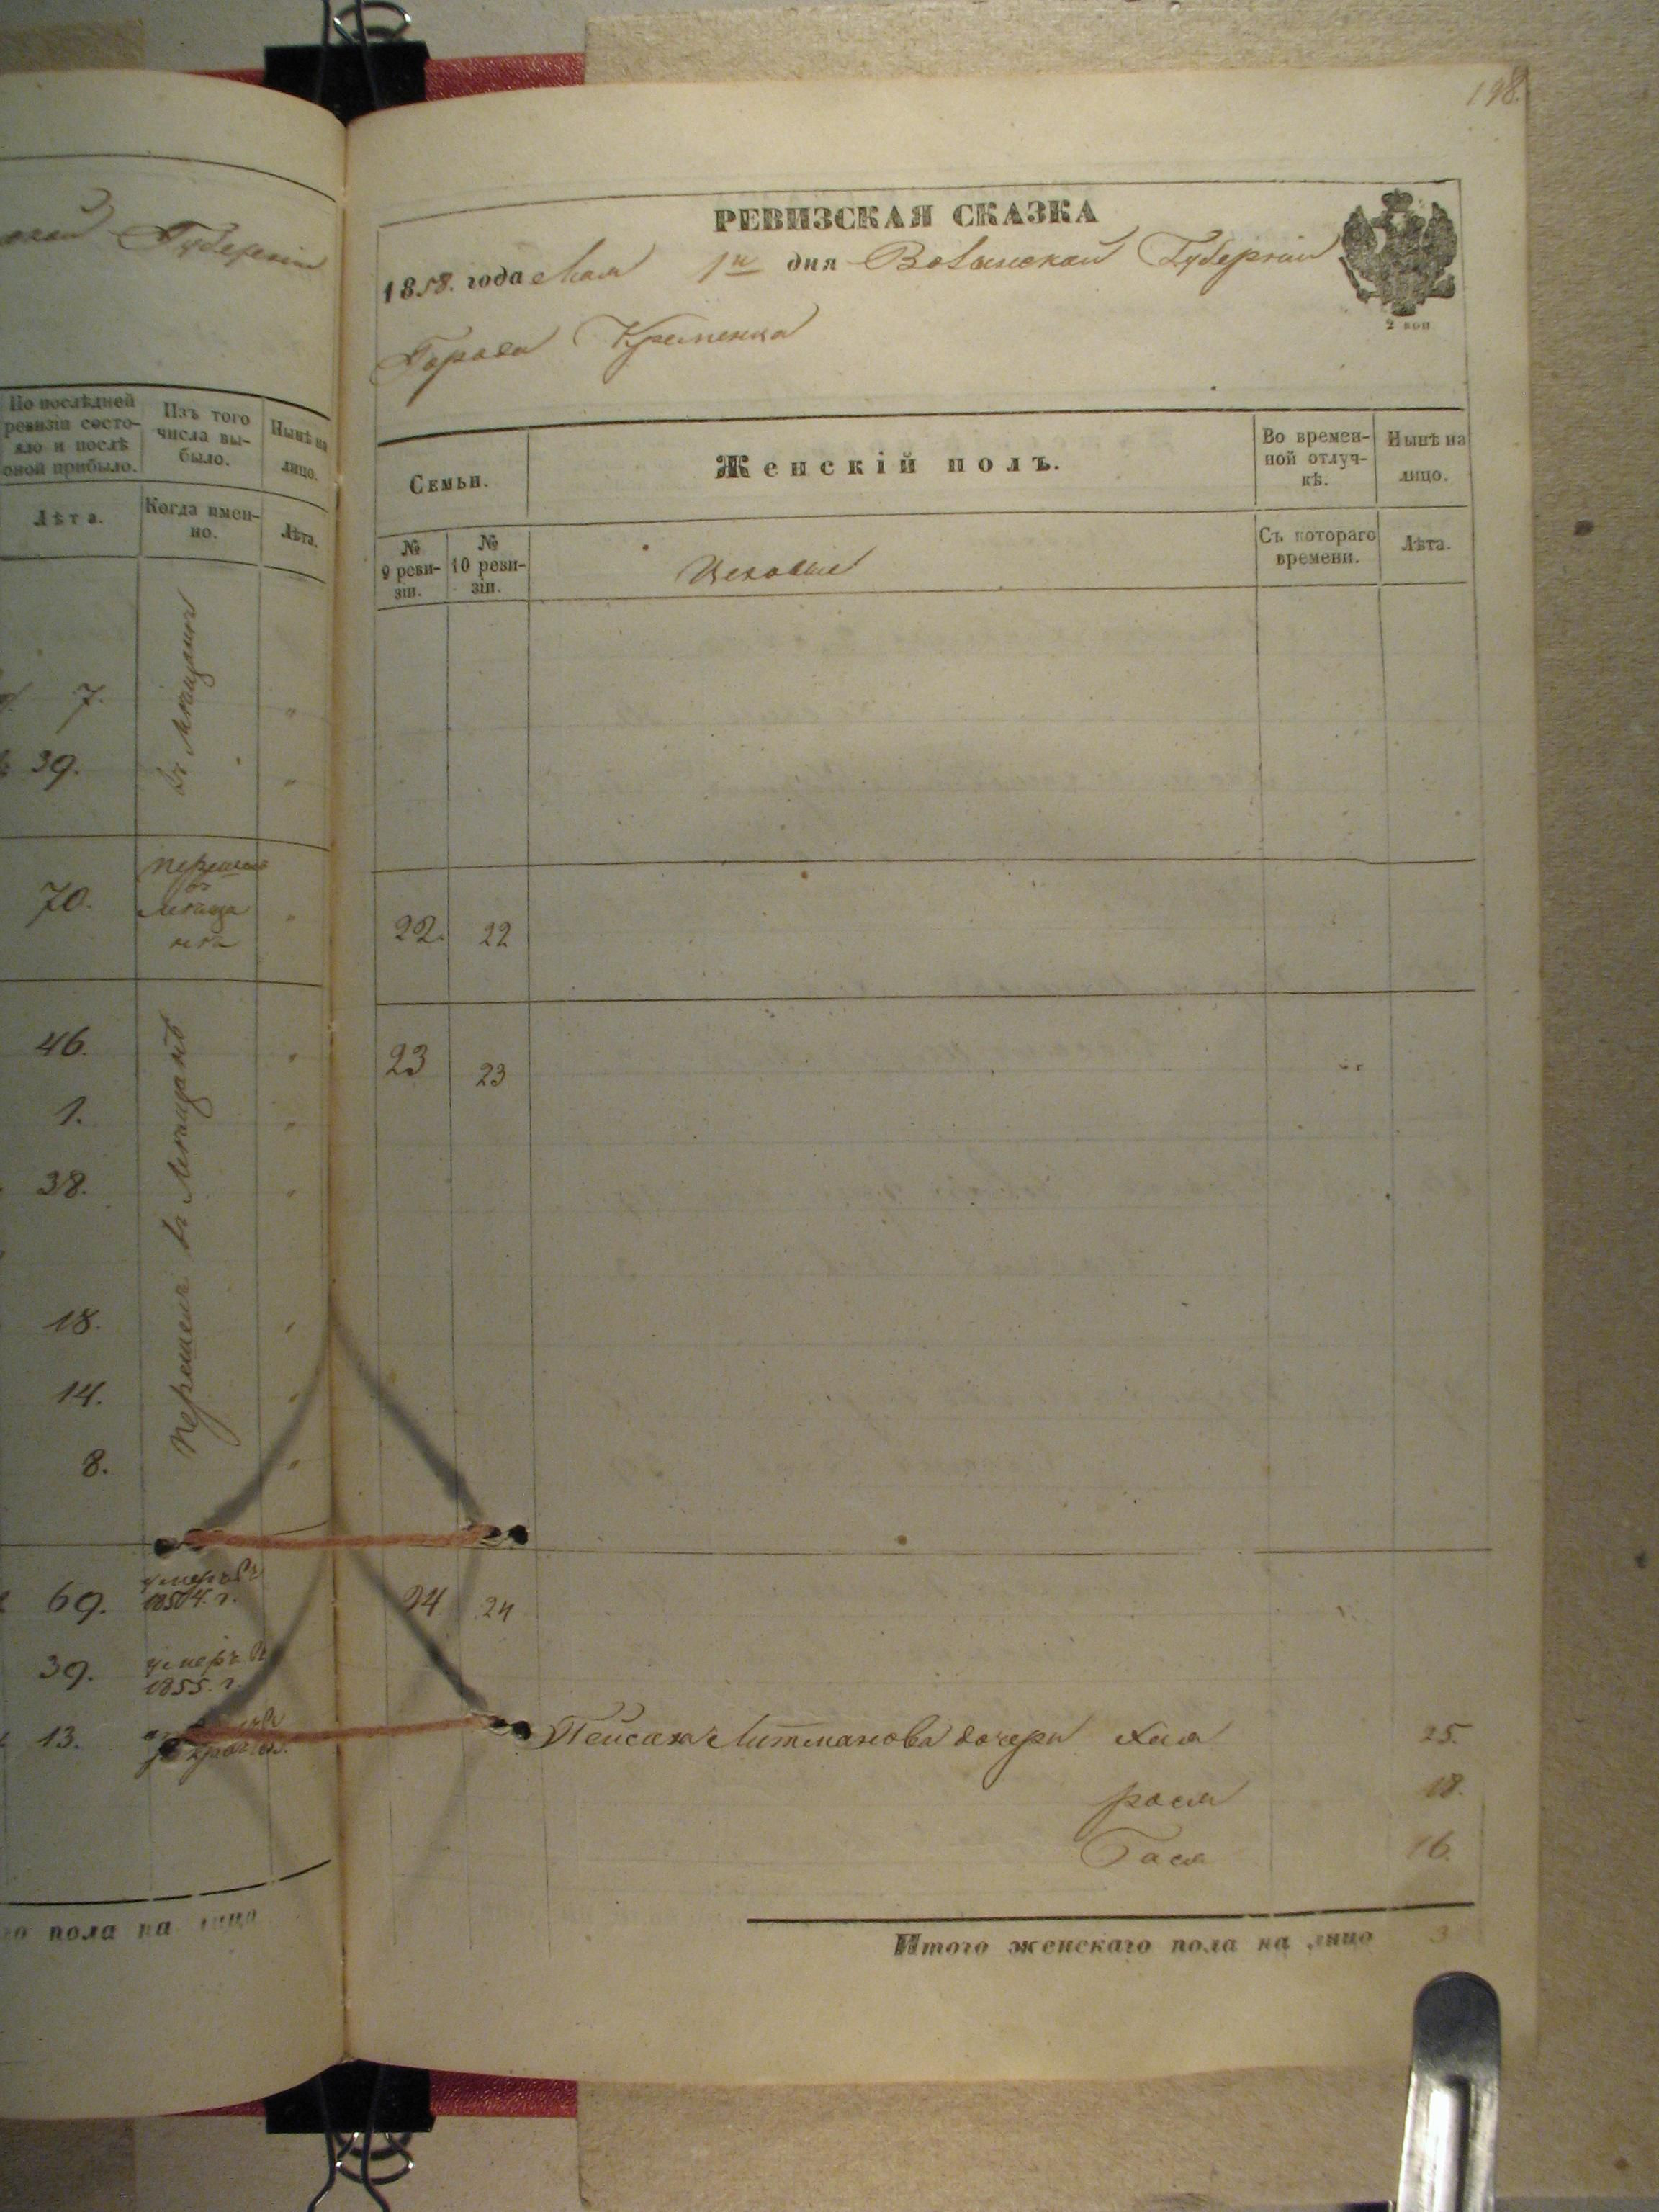 Губерніи
По послѣдней
ревизіи состо-
яло и послѣ
оной прибыло.
Изъ того
числа вы-
было.
Нынѣ на
лицо.
Лѣта.
Когда имен-
но.
Лѣта.
7.
въ мѣщанъ
"
39.
"
70.
"
46.
Перешелъ въ мѣщанъ
"
1.
"
38.
"
18.
"
14.
"
8.
"
69.
умеръ въ
1854. г.
39.
умеръ въ
1855. г.
13.
го пола на лицо
198.
РЕВИЗСКАЯ СКАЗКА
1858. года Мая 1го дня Волынской Губерніи
2 коп
Города Кременца
Семьи.
Женскій полъ.
Во времен-
ной отлуч-
кѣ.
Нынѣ на
лицо.
№
9 реви-
зіи.
№
10 реви-
зіи.
Цеховые
Съ котораго
времени.
Лѣта.
22. 22
23 23
24 24
Пейсаха Литманова дочери Хая 25.
рося 18.
Бася 16.
Итого женскаго пола на лицо 3